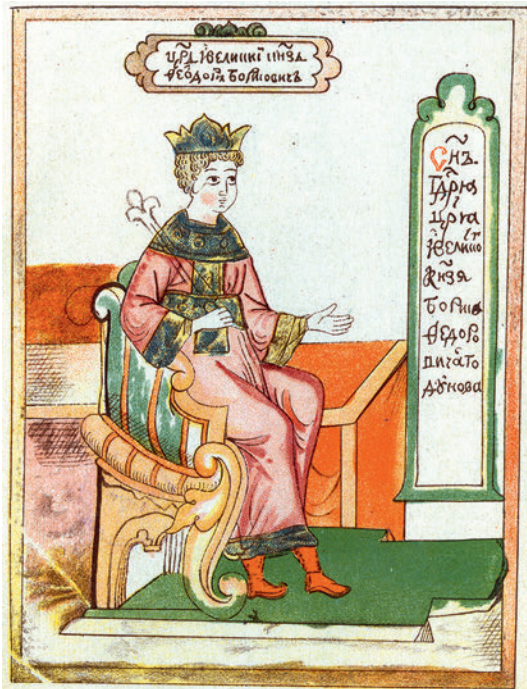 цр҃ь ївеликиї кн҃зь
Ѳеодоръ Борисовичъ
Сн҃ъ.
Гдр҃ѧ
ї
цр҃ѧ
ївеликоⷢ
кн҃зѧ
Бориса
Ѳедоро
вичаго
дꙋнова